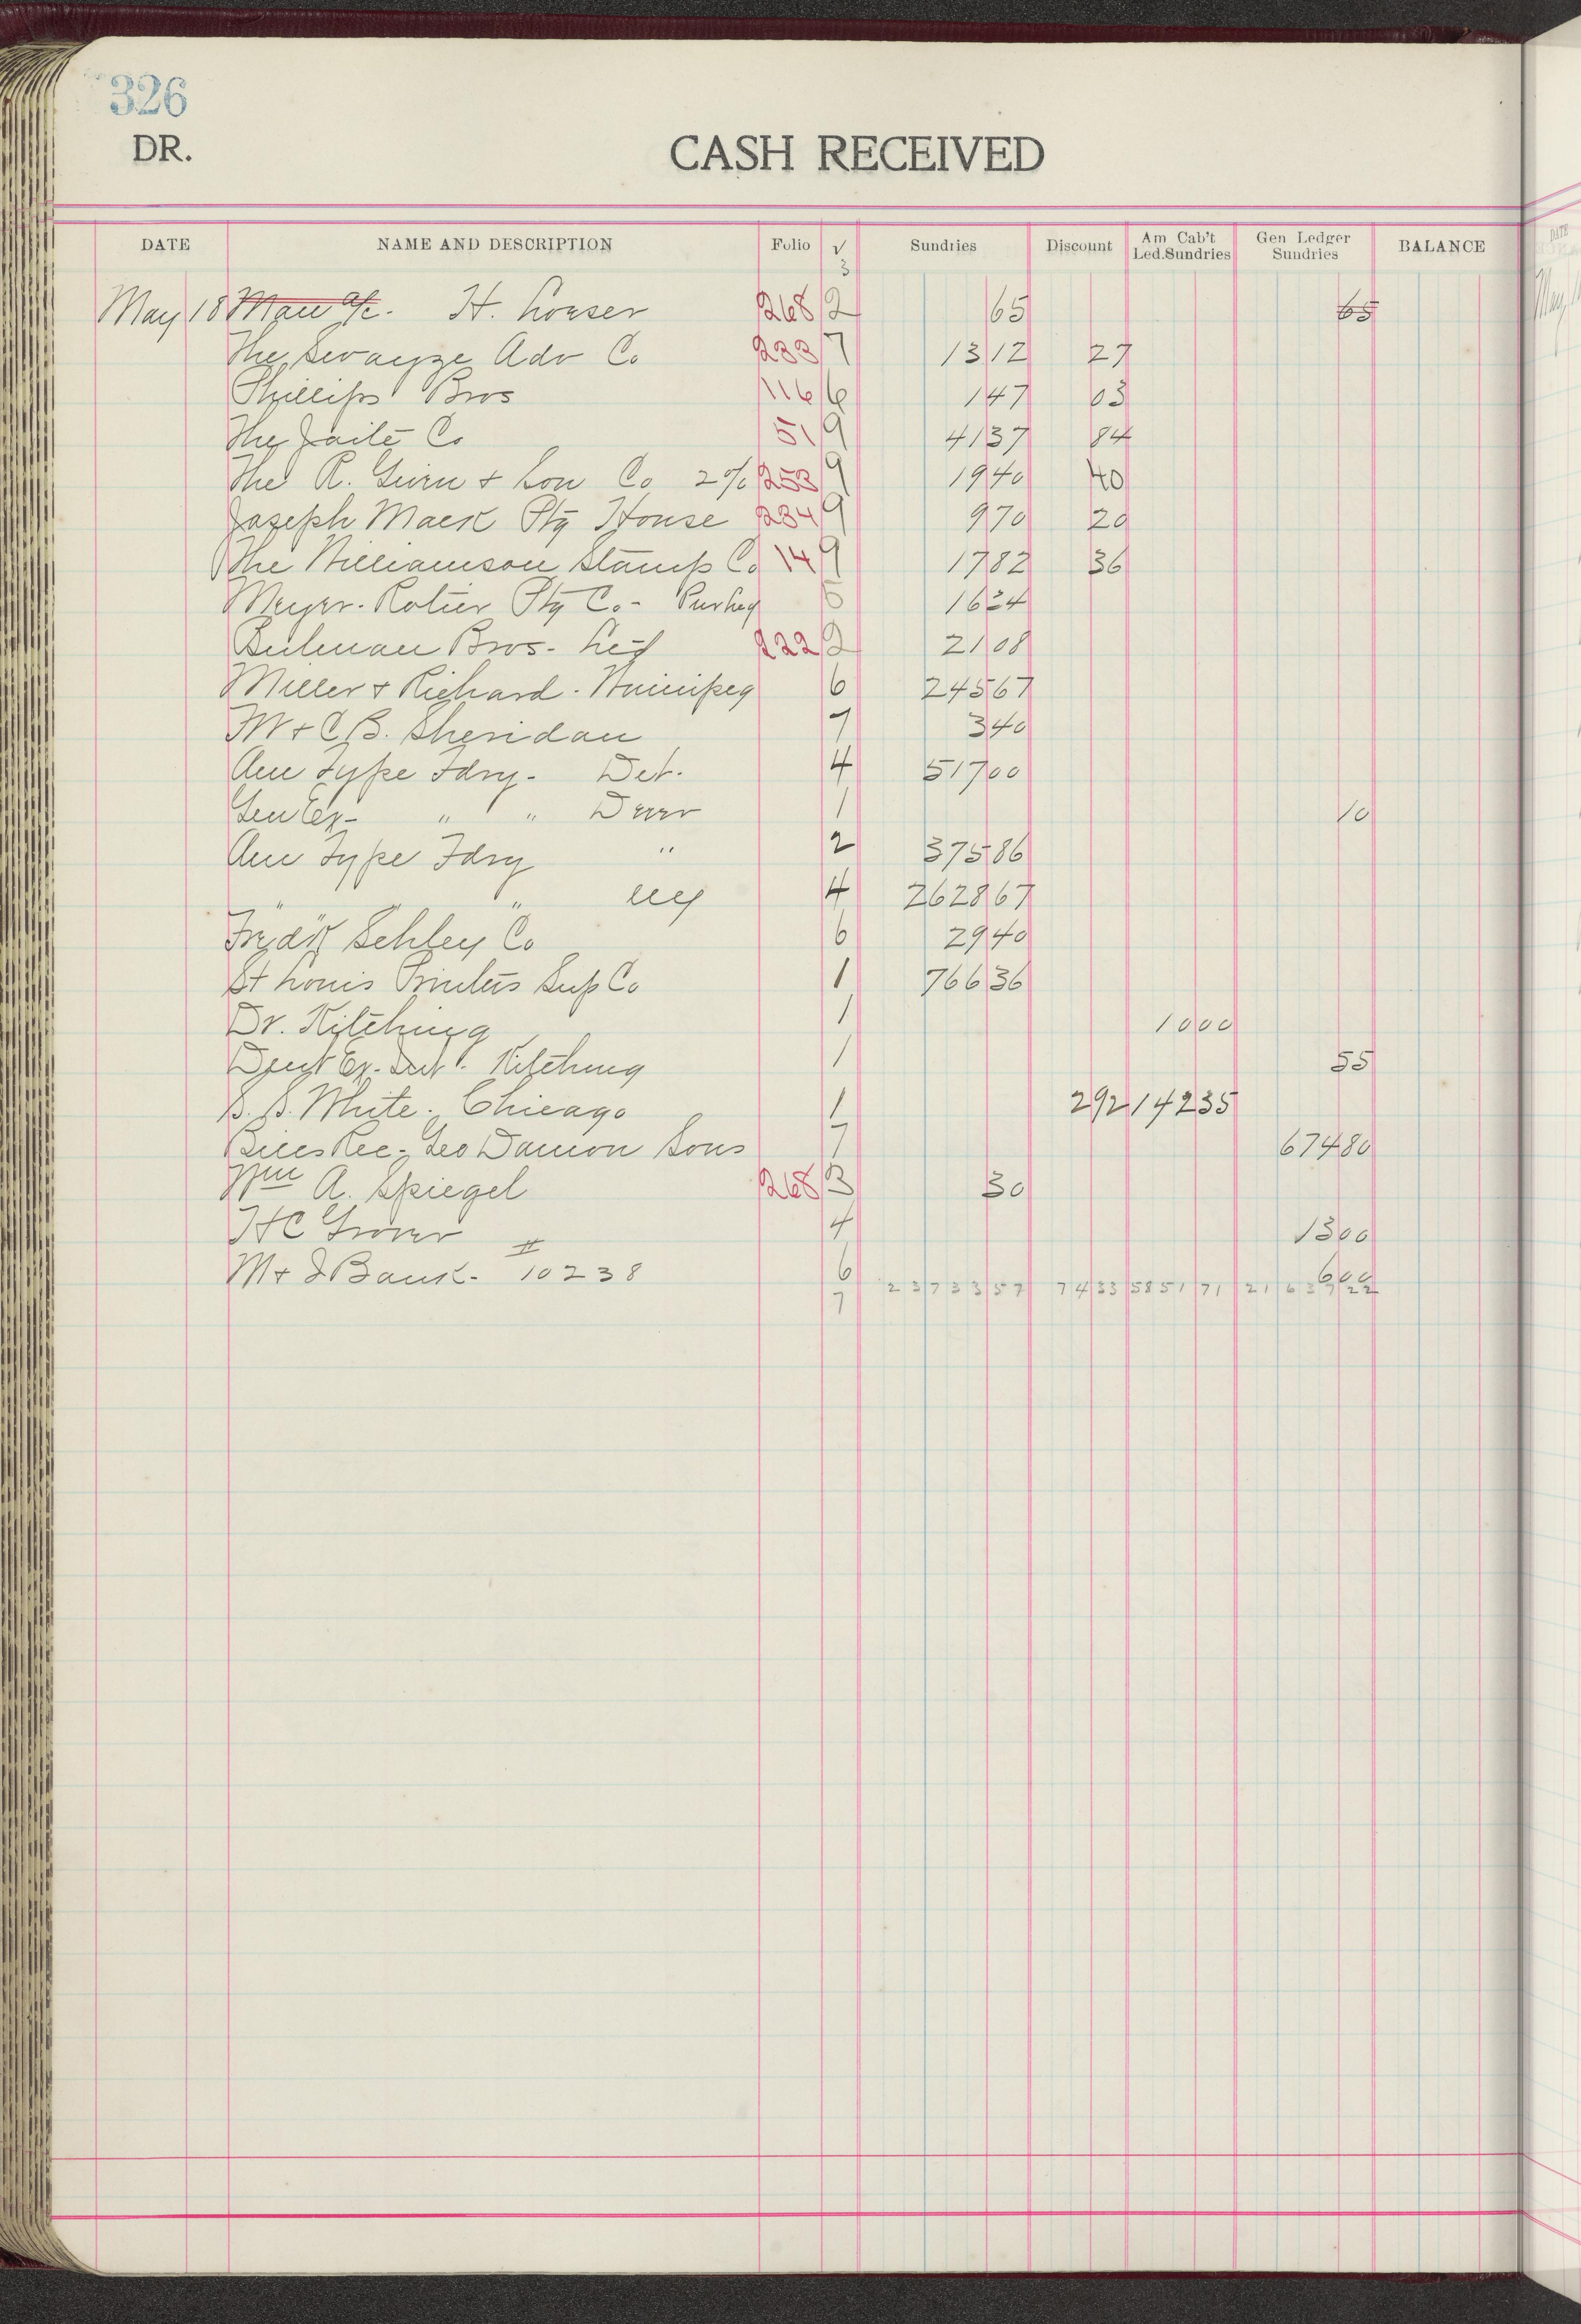 326
DR.
CASH RECEIVED
DATE NAME AND DESCRIPTION Folio √ Sundries Discount Am Cab't Led.Sundries Gen Ledger Sundries BALANCE
3
May 18 Man a/c. H. Loeser 268 2 65 65
The Swayze Adv Co 233 7 13 12 27
Phillips Bros 116 6 1 47 03
The Jaite Co 51 9 41 37 84
The R. & Son Co 2% 253 9 19 40 40
Joseph Mack Ptg House 234 9 9 70 20
The Williamson Stamp Co 14 9 17 82 36
Meyer-Rotier Ptg Co- 5 16 24
Bulman Bros- Ltd 222 2 21 08
Miller & Richard. Winnipeg 6 245 67
TW & CB. Sheridan 7 3 40
Am Type Fdry- Det. 4 517 00
Gen Ex- " " Denver 1 10
Am Type Fdry " 2 375 86
" " " 4 2628 67
Fredk Schley Co 6 29 40
St Louis Printers Sup Co 1 766 36
Dr. Kitching 1 10 00
Dent Ex-Int. Kitching 1 55
S. S. White. Chicago 1 2 92 142 35
Bills Rec- Geo Damon Sons 7 674 80
Wm A. Spiegel 268 3 30
HC Grover 4 13 00
M & S Bank- # 10238 6 6 00
7 23733 57 74 33 5851 71 21637 22